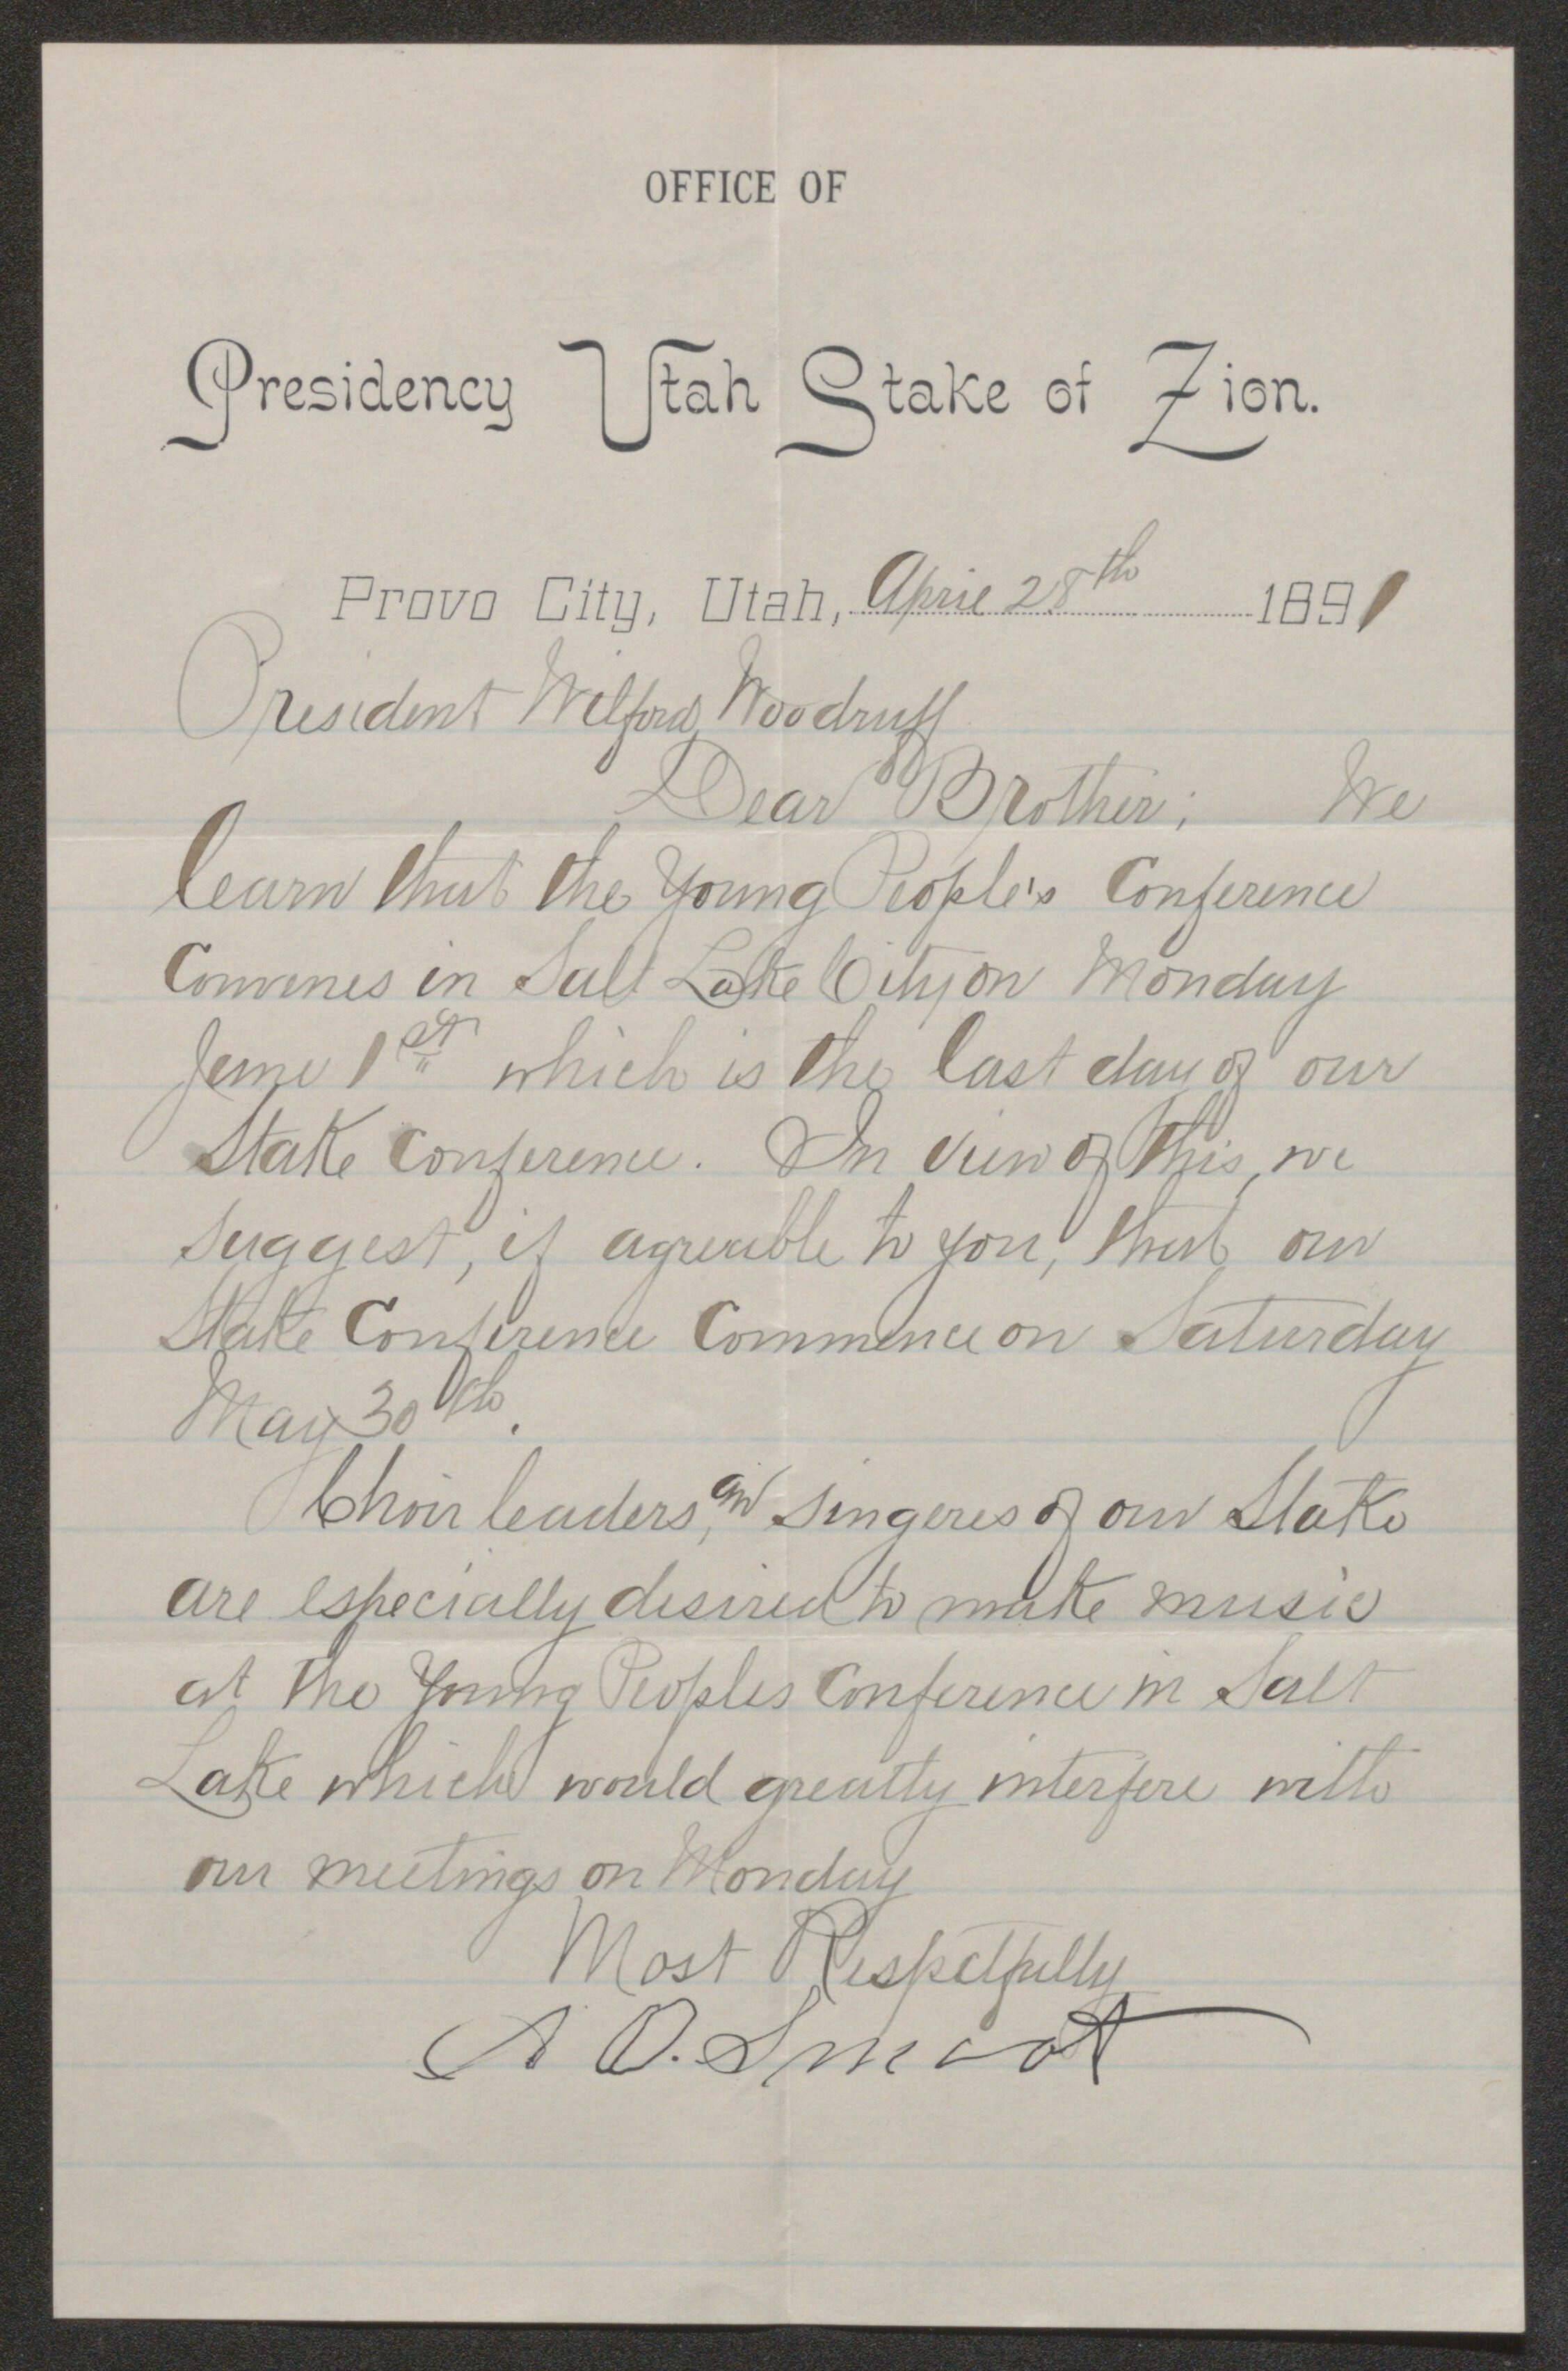 OFFICE OF
Presidency Utah Stake of Zion.
Provo City, Utah, April 28th 1891
President Wilford Woodruff
Dear Brother; We
learn that the Young People's Conference
Convenes in Salt Lake City on Monday
June 1st which is the last day of our
Stake Conference. In view of this, we
suggest, if agreeable to you, that our
Stake Conference Commence on Saturday
May 30th.
Choir leaders, and singeres of our Stake
are especially desired to make music
at the Young Peoples Conference in Salt
Lake which would greatly interfere with
our meetings on Monday
Most Respectfully
A O. Smoot